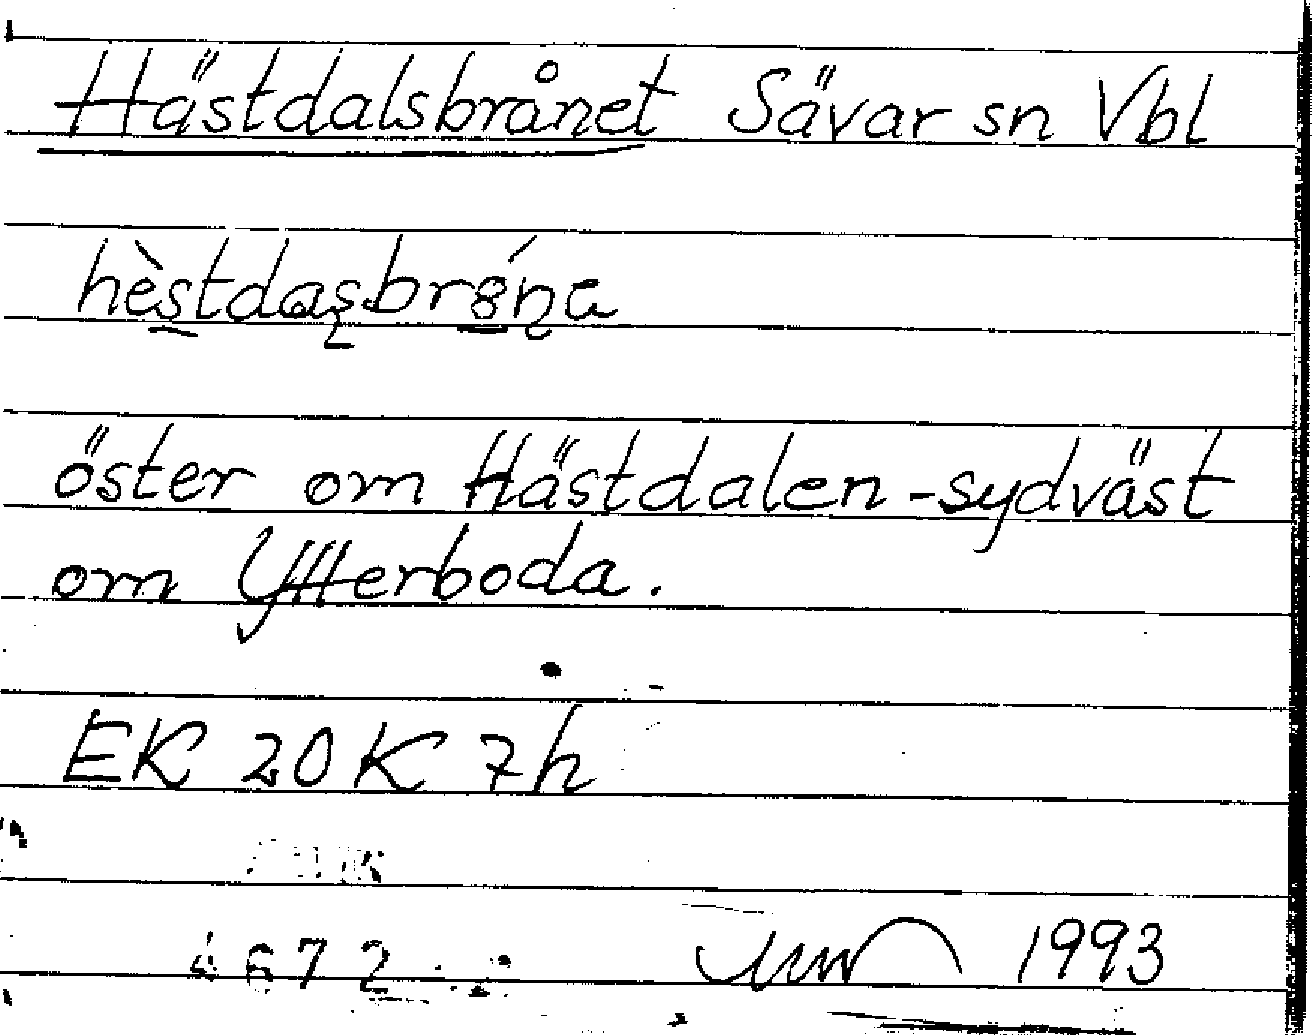 Hästdalsbrånet Sävar sn Vbl
hèstdaʂbrǿna
öster om Hästdalen - sydväst
om Ytterboda.
EK 20K 7h
4672
1993